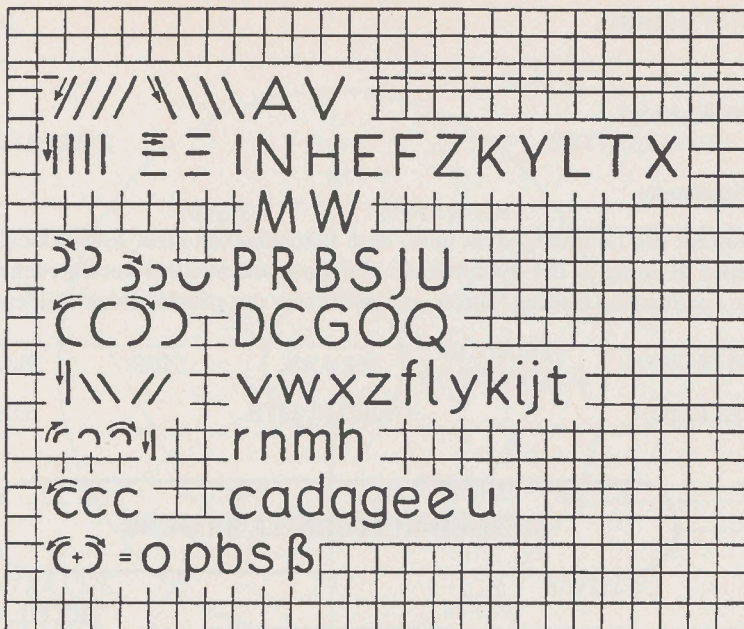 AV
INHEFZKYLTX
MW
PRBSJU
DCGOQ
vwxzflykijt
rnmh
ccc cadqgeeu
(+) = opbsß